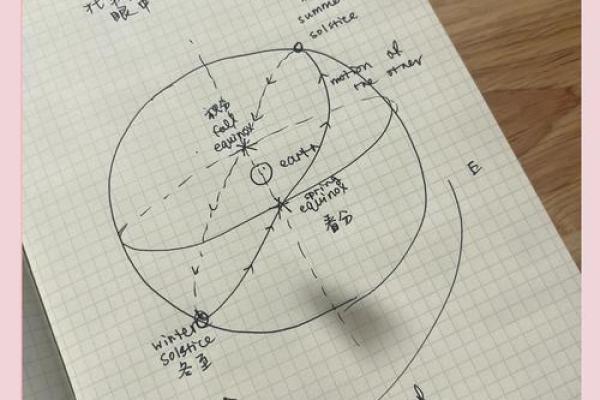 眼中
summer
solstice
motion of
the other
秋分
fall
equinox
earth
spring
equinox
春分
E
winter
solstice
冬至